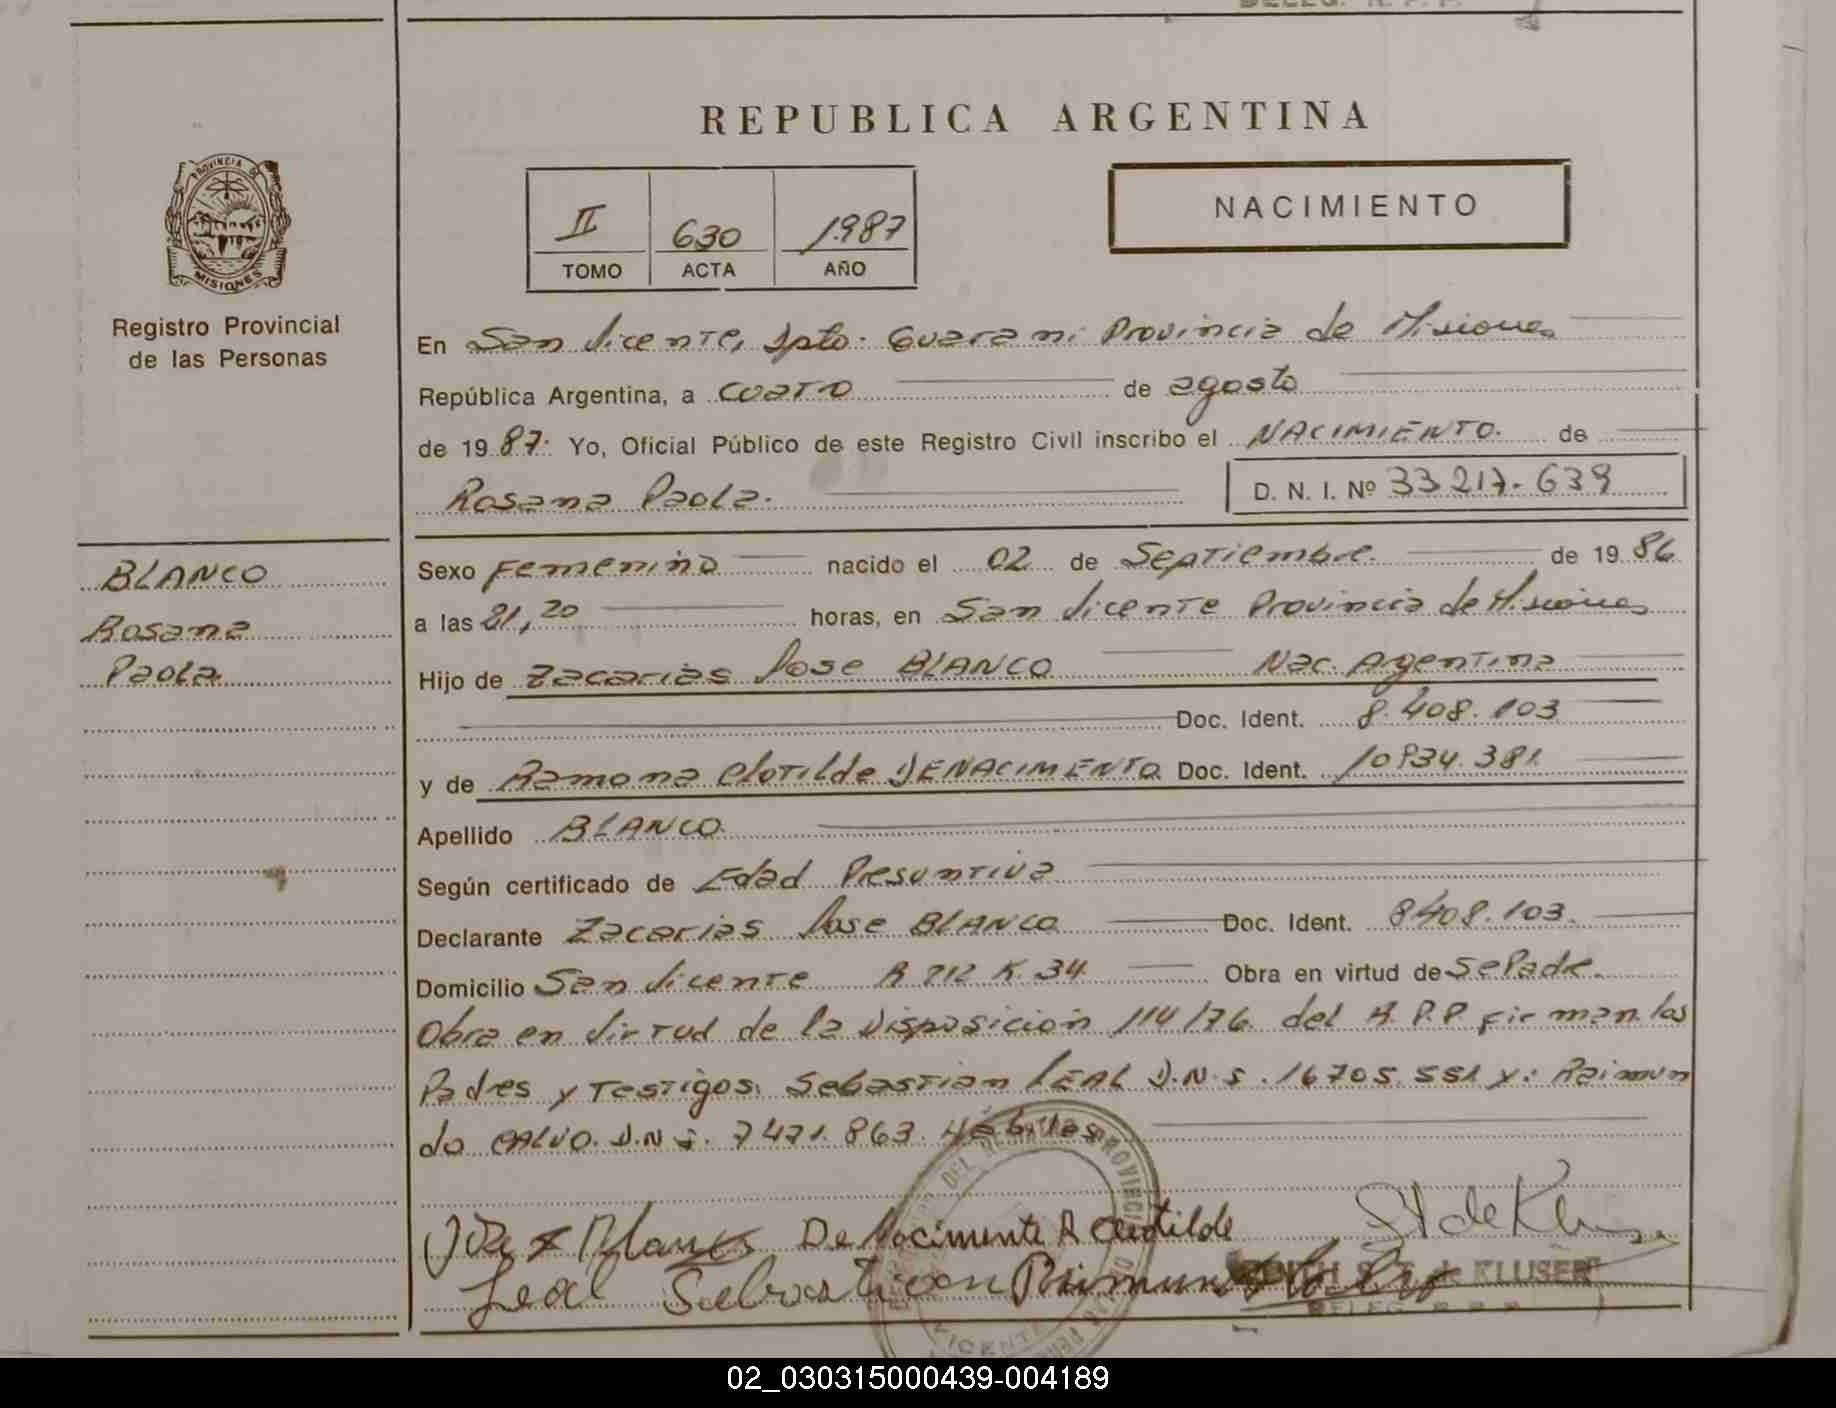 REPUBLICA ARGENTINA
PROVINCIA DE
MISIONES
Registro Provincial
de las Personas
II 630 1.987
TOMO ACTA AÑO
NACIMIENTO
En San Vicente, Dpto. Guarani Provincia de Misiones
República Argentina, a cuatro de agosto
de 1987. Yo, Oficial Público de este Registro Civil inscribo el NACIMIENTO. de
Rosana Paola. D. N. I. Nº 33 217. 639
BLANCO
Rosana
Paola.
Sexo Femenino nacido el 02 de Septiembre. de 1986
a las 21,20 horas, en San Vicente Provincia de Misiones
Hijo de Zacarias Jose BLANCO Nac. Argentina
Doc. Ident. 8.408.103
y de Ramona Clotilde DENACIMENTO. Doc. Ident. 10934.381.
Apellido BLANCO.
Según certificado de Edad Presuntiva
Declarante Zacarias Jose BLANCO Doc. Ident. 8408.103.
Domicilio San Vicente R 212 K. 34. Obra en virtud de Se Padre.
Obra en Virtud de la Disposicion 114/76. del R.P.P firman los
Padres y Testigos. Sebastian LEAL D.N.I. 16705.551 y: Raimun
do CALVO. D.N.I. 7471.863. Hábiles
De Nacimente R Cleotilde
Leal Sebastian
KLUSER
DELEG. R. P. P.
02_030315000439-004189